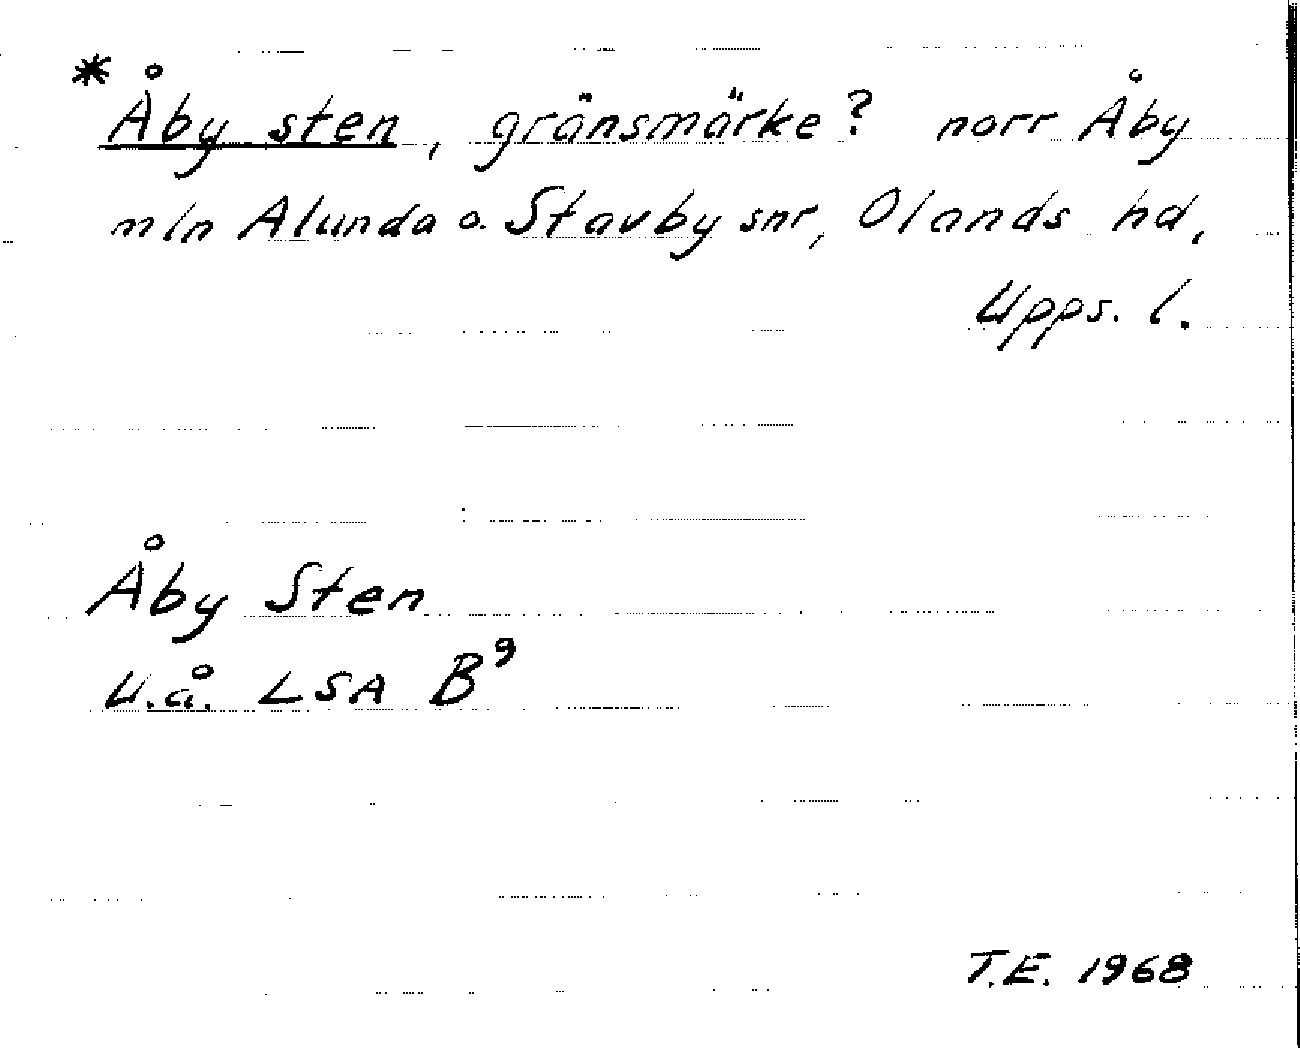 * Åby sten, gränsmärke? norr Åby
mln Alunda o. Stavby snr, Olands hd,
Upps. l.
Åby Sten
u.å. LSA B⁹
T.E. 1968